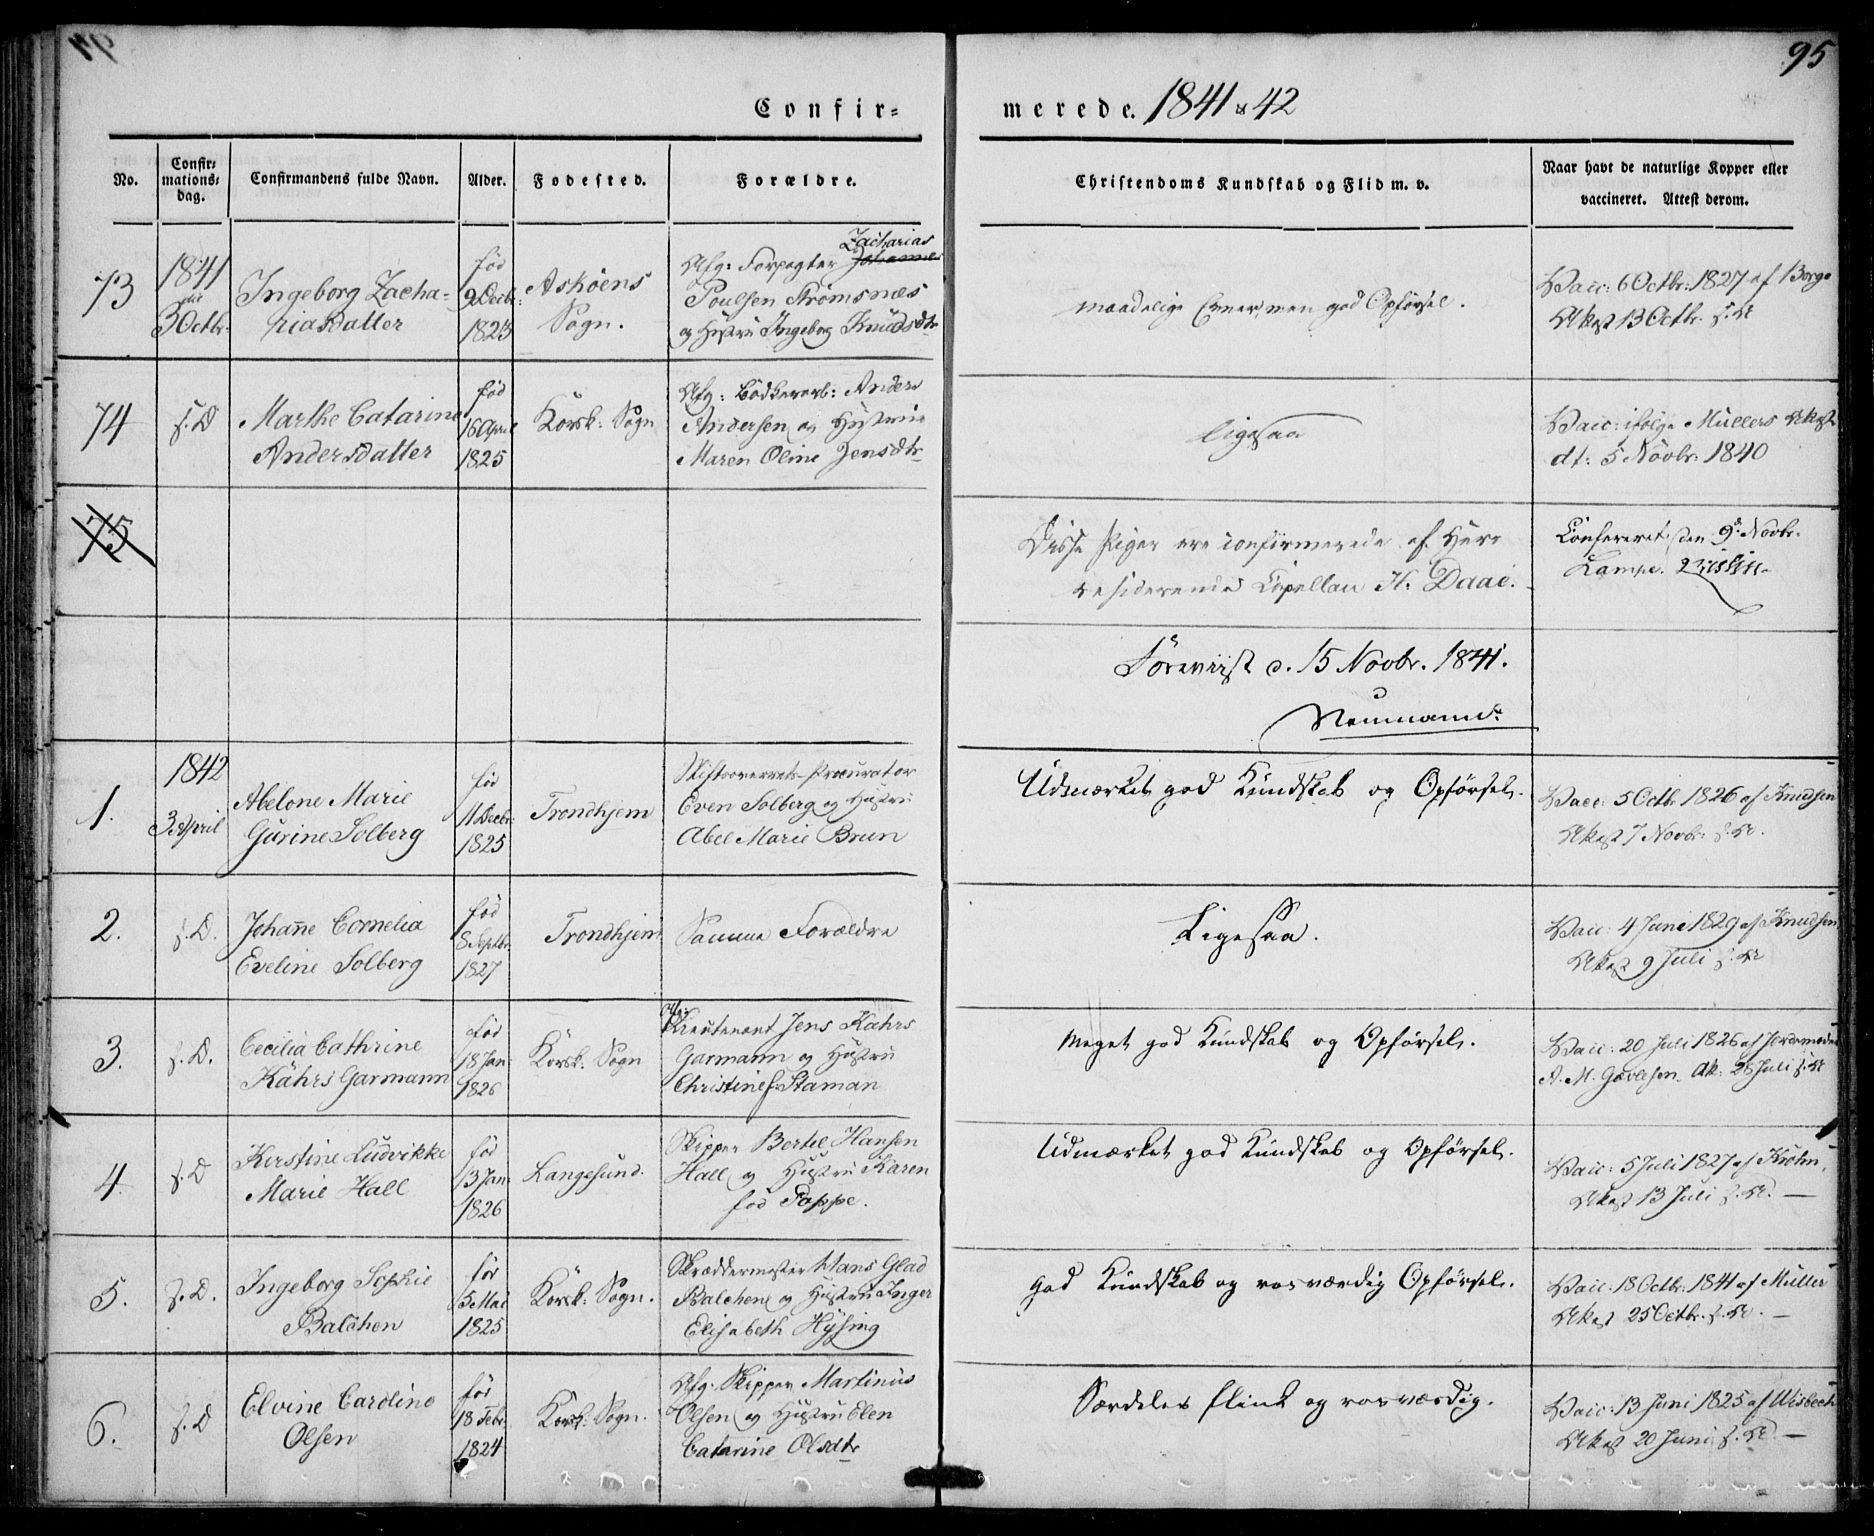 95
Confir=
merede. 1841 & 42
No.
Confir=
mations=
dag.
Confirmandens fulde Navn.
Alder.
Fødested.
Forældre.
Christendoms Kundskab og Flid m. v.
Naar havt de naturlige Kopper eller
vaccineret. Attest derom.
73
1841
3 Octbr:
Ingeborg Zacha-
riasdatter
fød
9 Decbr:
1823
Askøens
Sogn.
Afg: Forpagter Johannes Zacharias
Poulsen Strømsnæs
og Hustru Ingeborg Knudsdtr
maadelige Evner, men god Opførsel.
Vacc: 6 Octbr: 1827 af Borge
Attest 13 Octbr. s. A
74
s. D
Marthe Catarina
Andersdatter
fød
16 April
1825
Korsk: Sogn
Afg: Bødkersv: Anders
Andersen og Hustrue
Maren Oline Jensdtr
ligesaa
Vacc: ifølge Müllers Attest
dt: 5 Novbr: 1840
75
Disse Piger ere confirmerede af Herr
residerende Capellan H. Daae.
Confereret den 9de Novbr.
Lampe.
Foreviist d. 15 Novbr. 1841.
Neumann.
1.
1842
3 April
Abelone Marie
Gurine Solberg
fød
11 Decbr:
1825
Trondhjem
Stiftsoverrets-Procurator
Even Solberg og Hustru
Abel Marie Brun
Udmærket god Kundskab og Opførsel.
Vacc: 5 Octb 1826 af Knudsen
Attest 7 Novbr: s. A.
2.
s. D.
Johanne Cornelia
Eveline Solberg
fød
8 Septbr.
1827
Trondhjem
Samme Forældre
Ligesaa.
Vacc: 4 Juni 1829 af Knudsen
Attest 9 Juli s. A
3.
s. D.
Cecilia Cathrine
Kahrs Garmann
fød
18 Jan:
1826
Korsk: Sogn
Afg: Lieutenant Jens Kahrs
Garmann og Hustru
Christine f. Staman
Meget god Kundskab og Opførsel.
Vacc: 20 Juli 1826 af Jordemoder
A. M. Gævesen. At: 28 Juli s. A
4.
s. D
Kirstine Ludvikke
Marie Hall
fød
13 Jan:
1826
Langesund.
Skipper Bertel Hansen
Hall og Hustru Karen
fød Pappe.
Udmærket god Kundskab og Opførsel.
Vacc: 5 Juli 1827 af Krohn,
Attest 13 Juli s. A. —
5.
s. D.
Ingeborg Sophie
Balchen
før
5 Mai
1825
Korsk: Sogn.
Skræddermester Hans Glad
Balchen og Hustru Inger
Elisabeth Hysing
God Kundskab og rosværdig Opførsel.
Vacc: 18 Octbr: 1841 af Müller
Attest 25 Octbr. s. A. —
6.
s. D
Elvine Caroline
Olsen
før
18 Febr.
1824
Korsk: Sogn.
Afg. Skipper Martinus
Olsen og Hustru Elen
Catarine Olsdtr
Særdeles flink og rosværdig.
Vacc: 13 Juni 1825 af Wisbech
Attest 20 Juni s. A —